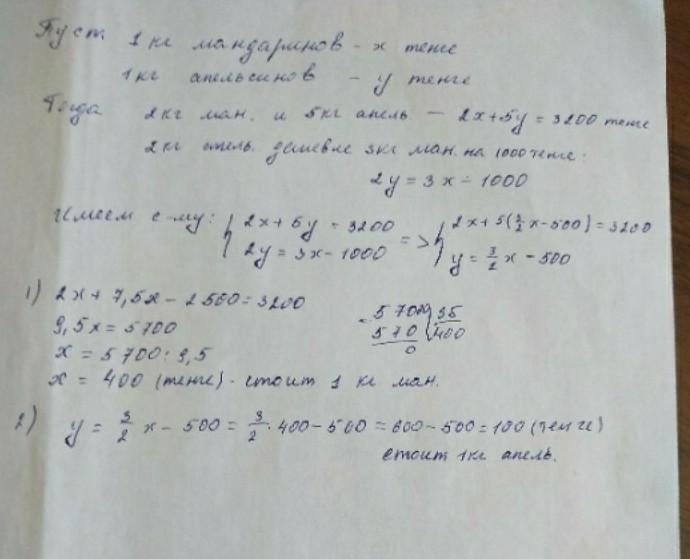 Пуст. 1 кг мандаринов - x тенге
1 кг апельсинов - y тенге
Тогда 2 кг ман. и 5 кг апель — 2x+5y=3200 тенге
2 кг апель. дешевле 3 кг ман. на 1000 тенге:
2y = 3x - 1000
Имеем с-му: { 2x + 5y = 3200 => { 2x + 5(3/2x - 500) = 3200
2y = 3x - 1000 y = 3/2 x - 500
1) 2x + 7,5x - 2500 = 3200
9,5x = 5700
x = 5700 : 9,5
x = 400 (тенге) - стоит 1 кг ман.
5700 | 95
570 | 400
0
2) y = 3/2 x - 500 = 3/2 · 400 - 500 = 600 - 500 = 100 (тенге)
стоит 1 кг апель.